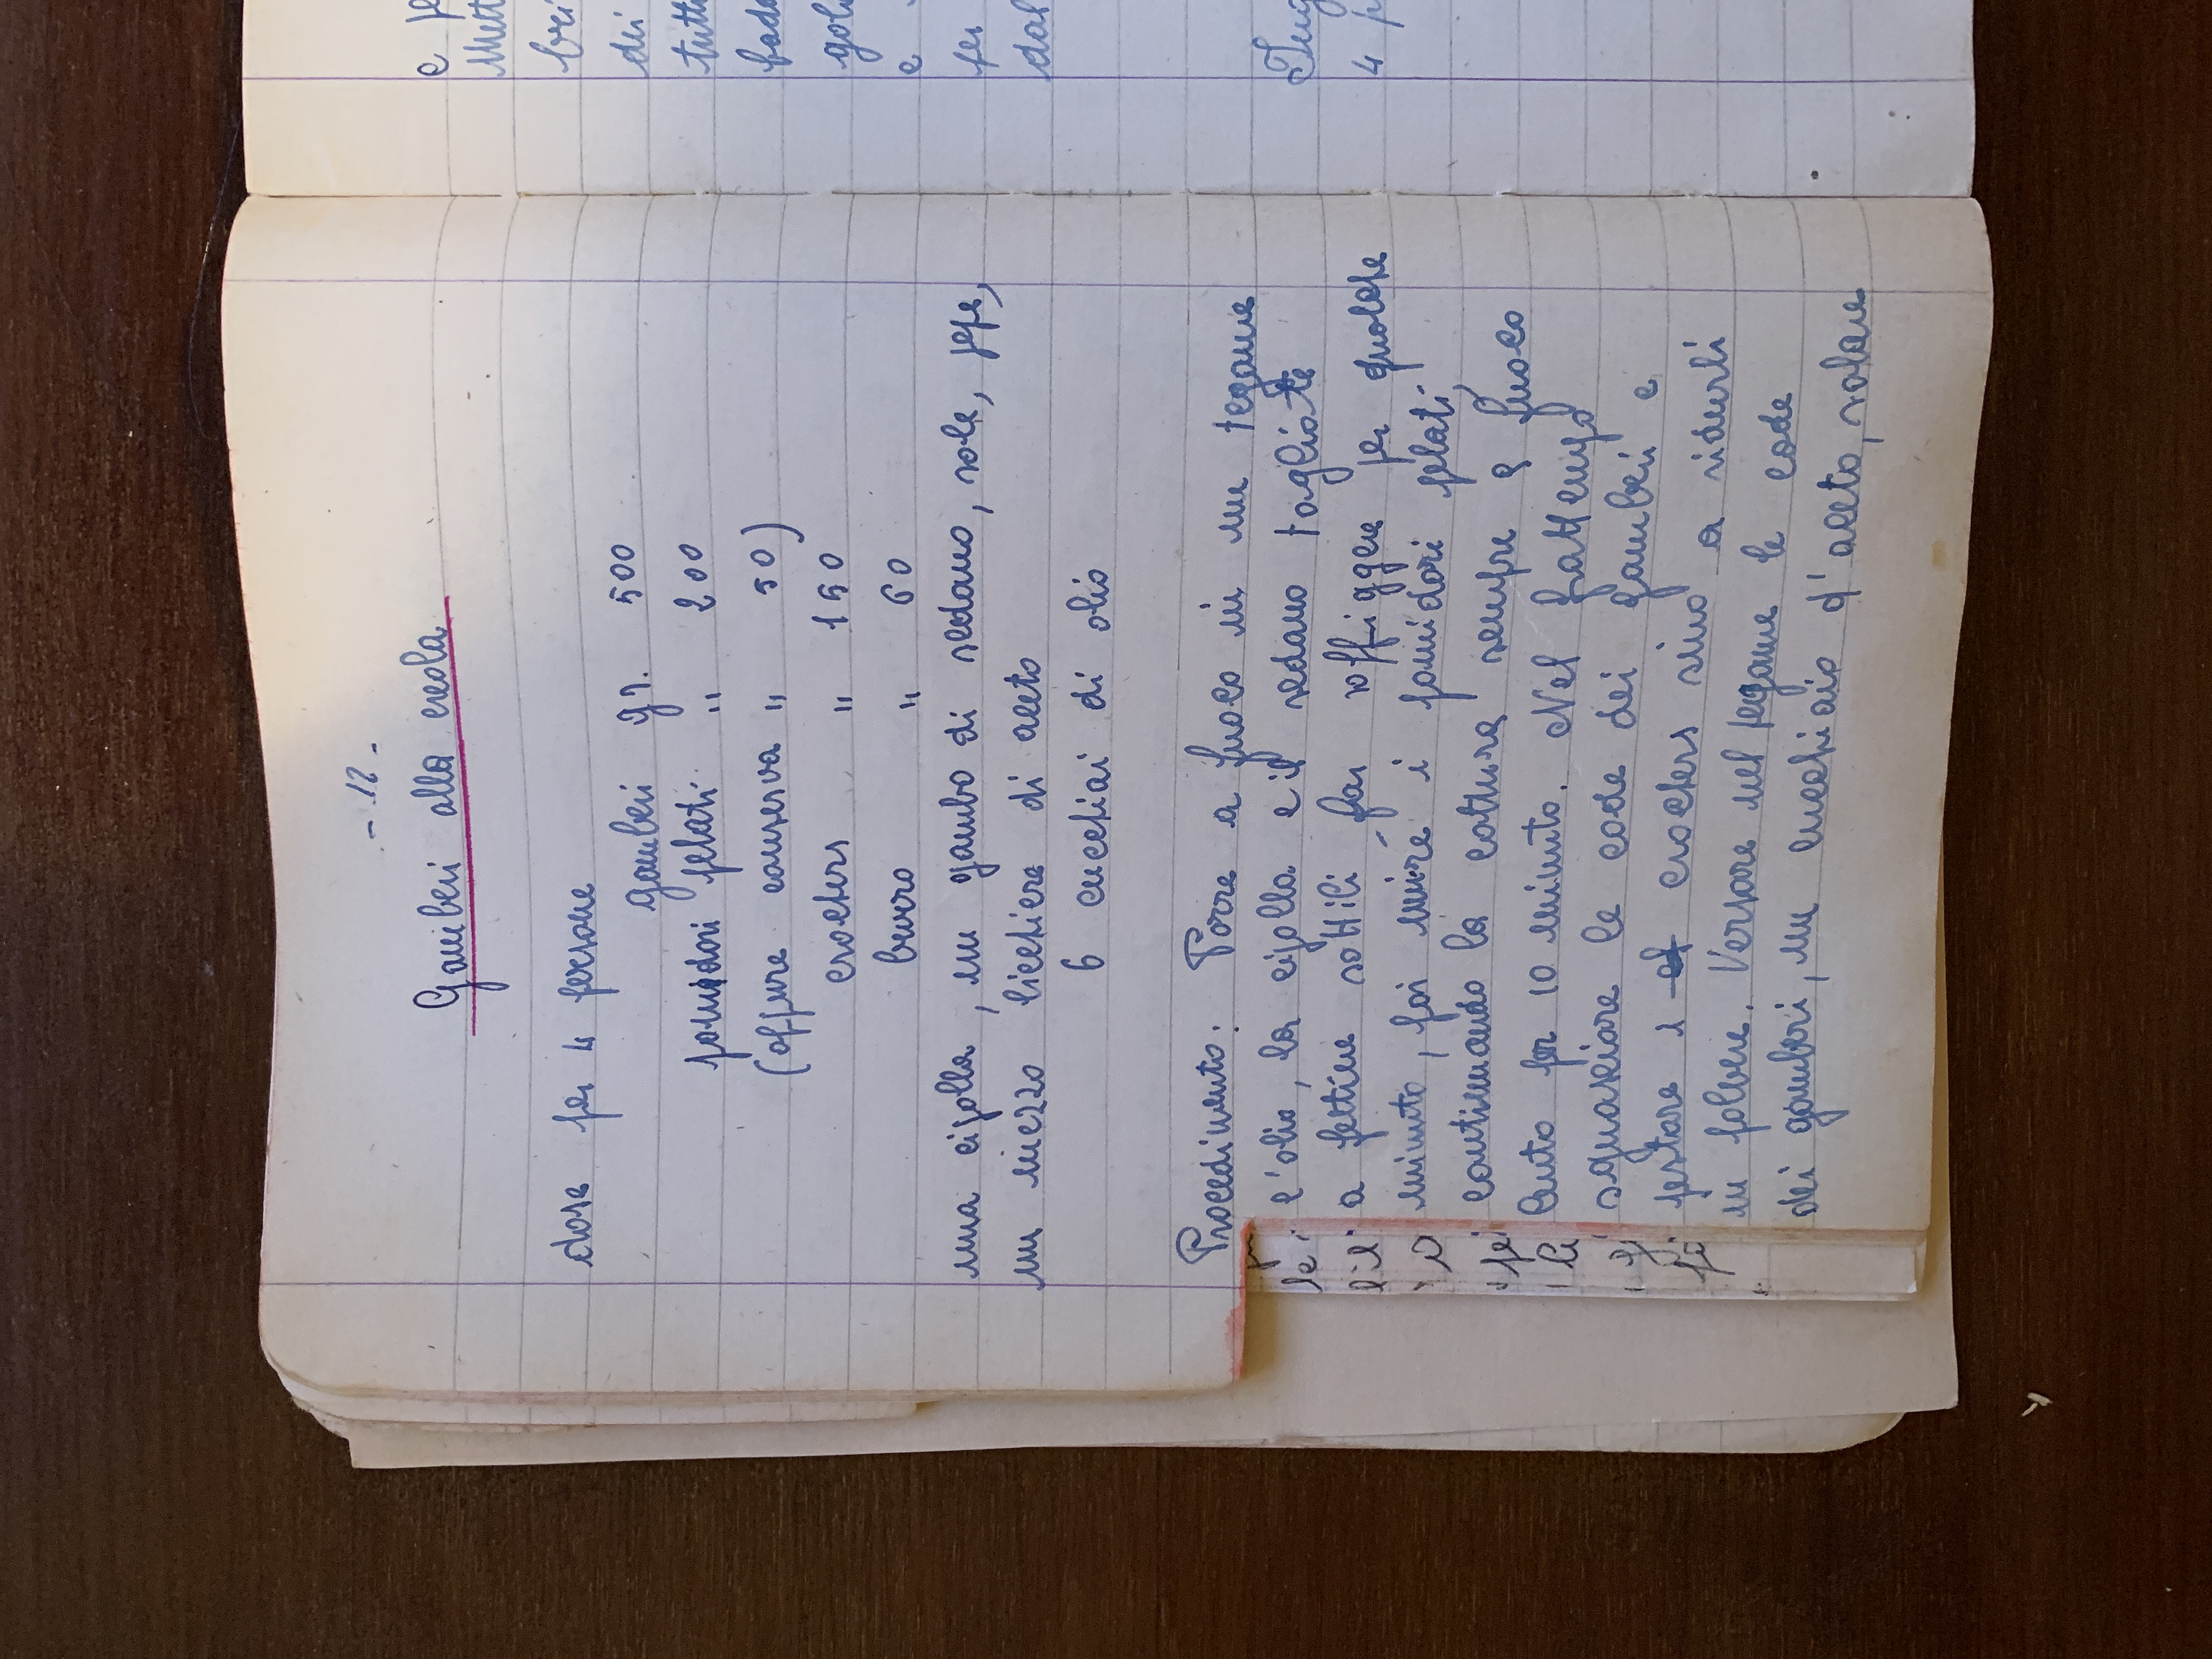 - 12 -
Gamberi alla creola
dose per 4 persone
gamberi gr. 500
pomidori pelati " 200
(oppure conserva " 50)
crochers " 150
burro " 60
una cipolla, un gambo di sedano, sale, pepe,
un mezzo bicchiere di aceto
6 cucchiai di olio
Procedimento: Porre a fuoco in un tegame
l'olio, la cipolla e il sedano tagliate
a fettine sottili far soffriggere per qualche
minuto, poi unire i pomidori pelati,
continuando la cottura sempre a fuoco
lento per 10 minuto. Nel frattempo
sgusciare le code dei gamberi e
pestare i crochers sino a ridurli
in polvere. Versare nel tegame le code
dei gamberi, un cucchiaio d'aceto, salare
le
lil
e
Mett
bri
dei
tutt
bad
gol
e
per
dal
4